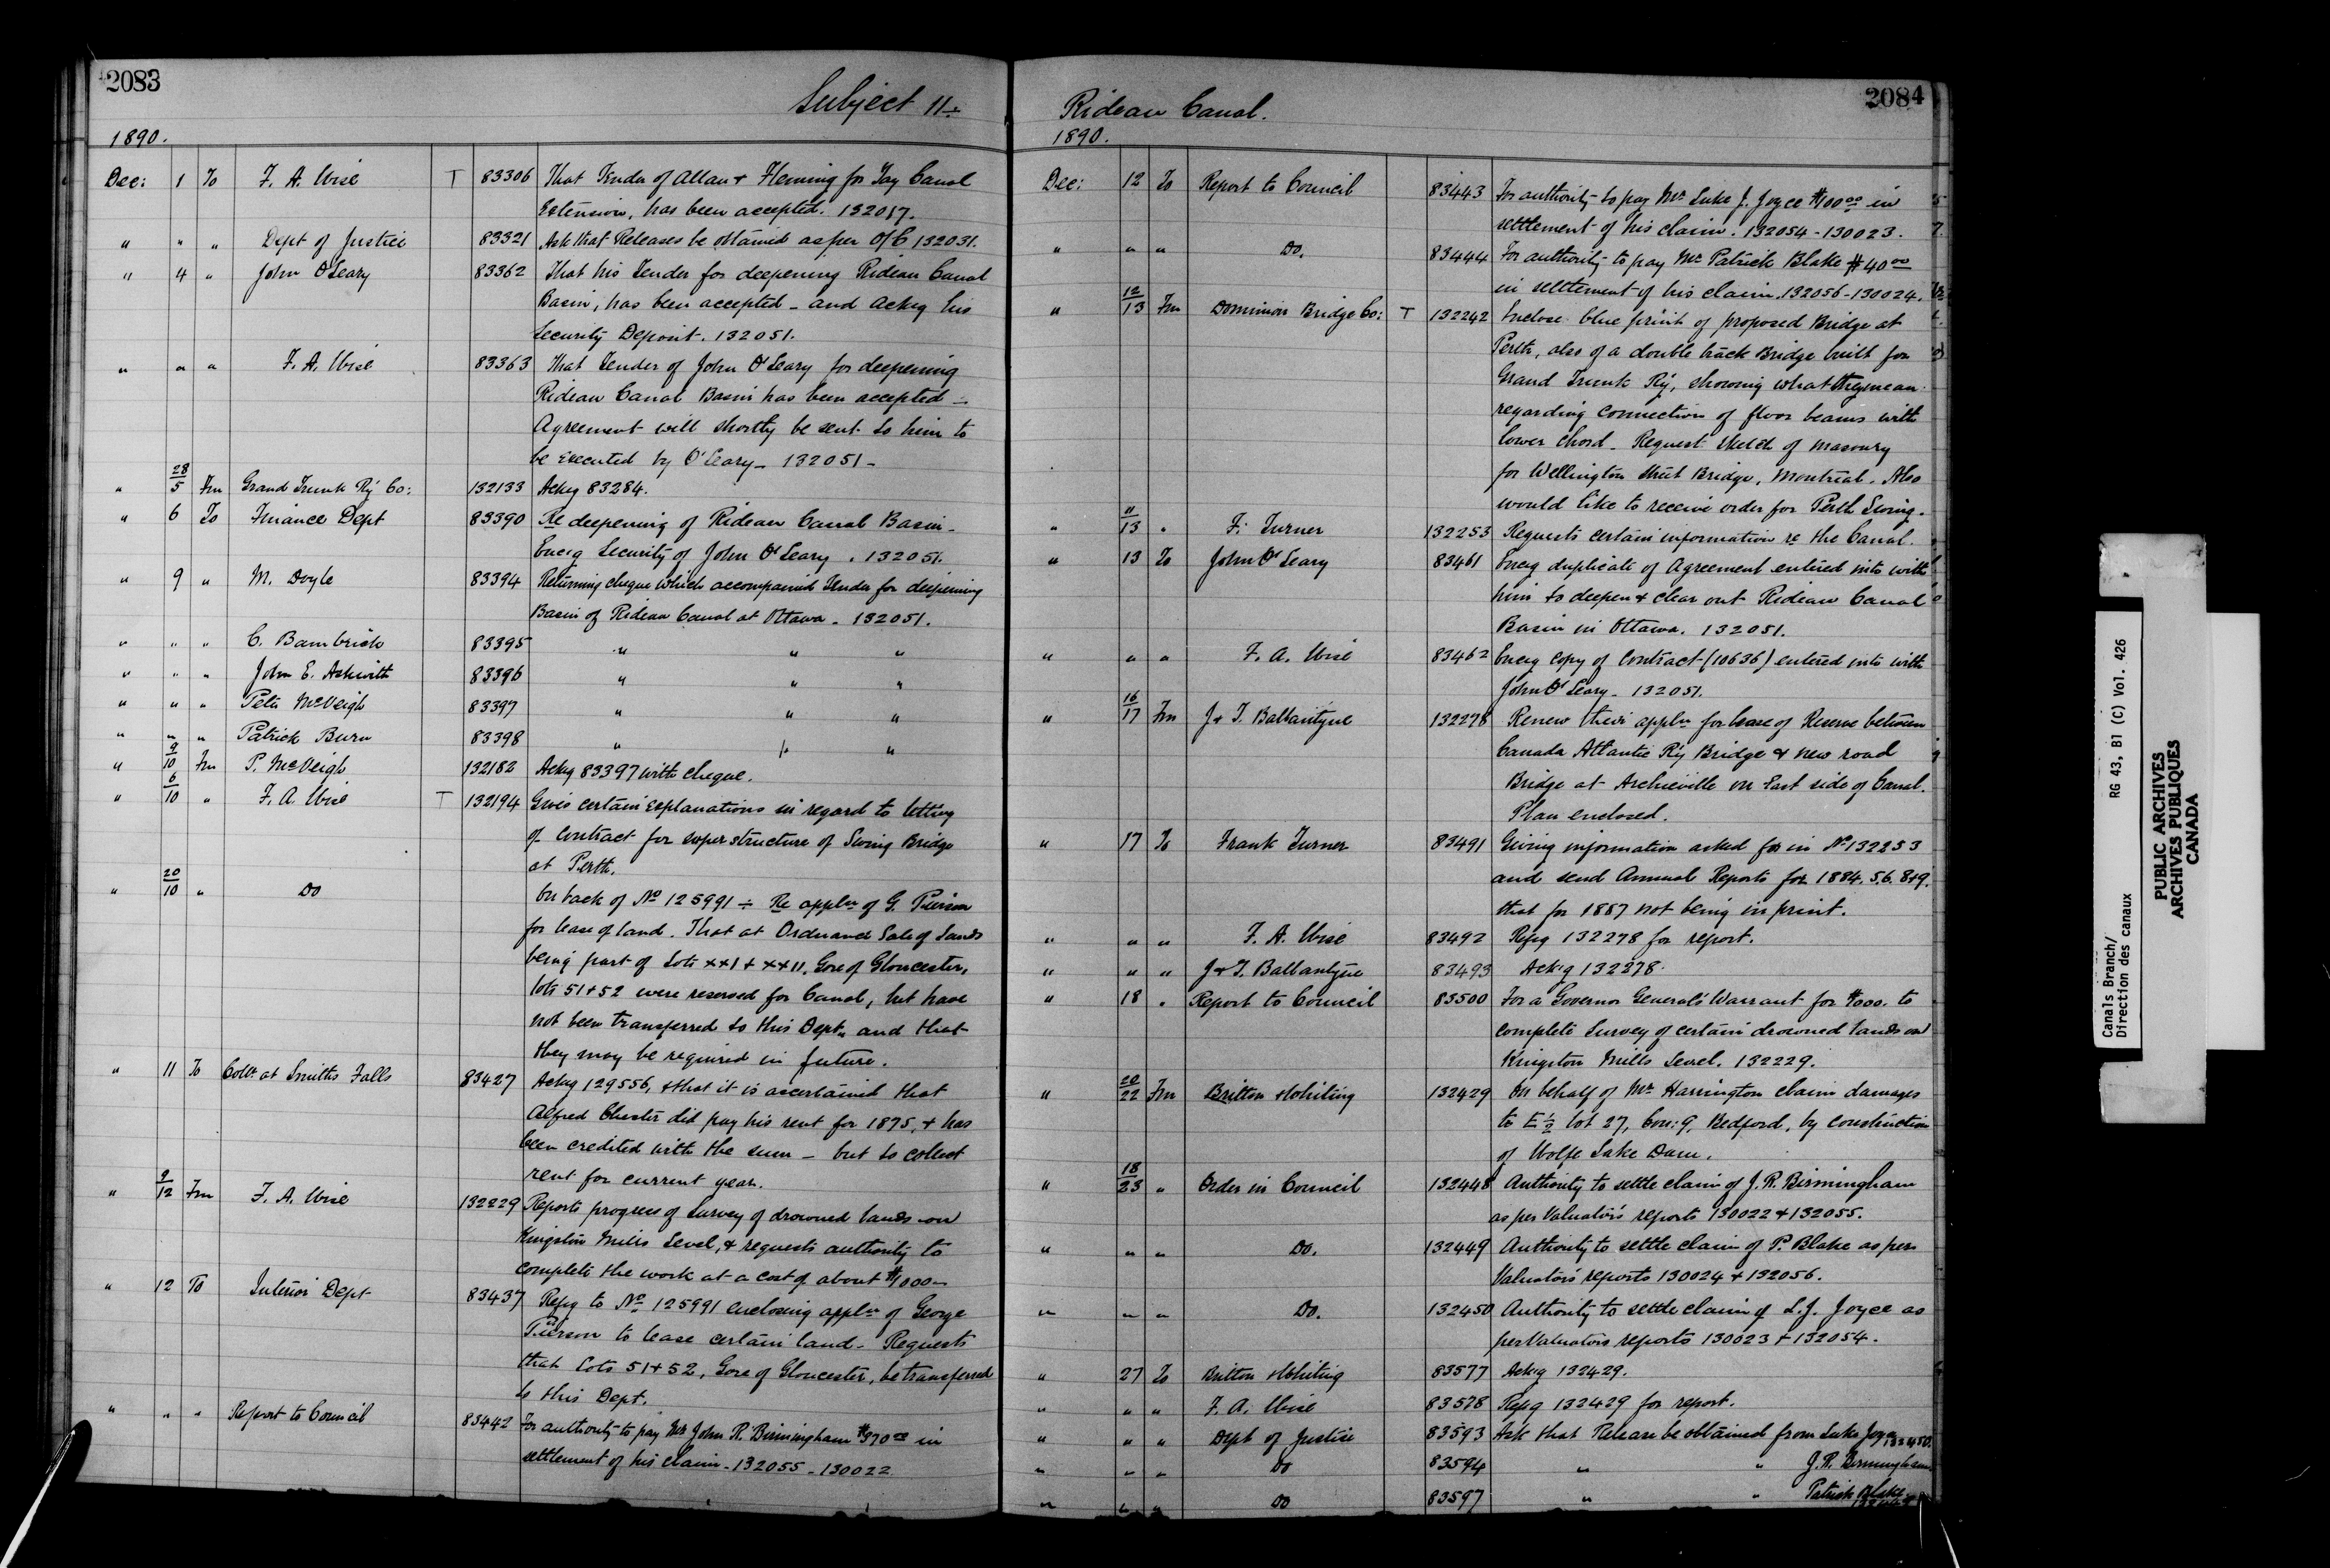 2083
Subject 11
1890.
Dec: 1 To F. A. Wise T 83306 That Tender of Allan + Fleming for Tay Canal
Extension, has been accepted. 132017.
" " " Dept of Justice 83321 Ask that Releases be obtained as per O/C 132031.
" 4 " John O'Leary 83362 That his Tender for deepening Rideau Canal
Basin, has been accepted - and Ackg his
Security Deposit. 132051.
" " " F. A. Wise 83363 That Tender of John O'Leary for deepening
Rideau Canal Basin has been accepted -
Agreement will shortly be sent to him to
be executed by O'Leary - 132051 -
" 28/5 Fm Grand Trunk Ry Co: 132133 Ackg 83284.
" 6 To Finance Dept 83390 Re deepening of Rideau Canal Basin -
Encg Security of John O'Leary. 132051.
" 9 " M. Doyle 83394 Returning cheque which accompanied Tender for deepening
Basin of Rideau Canal at Ottawa - 132051.
" " " C. Bambrick 83395 " " "
" " " John E. Askwith 83396 " " "
" " " Peter McVeigh 83397 " " "
" " " Patrick Burn 83398 " " "
" 9/10 Fm P. McVeigh 132182 Ackg 83397 with cheque.
" 6/10 " F. A. Wise T 132194 Gives certain explanations in regard to letting
of contract for superstructure of Swing Bridge
at Perth.
" 20/10 " Do On back of No 125991 ÷ Re appln of G. Pierson
for lease of land. That at Ordnance Sale of Lands
being part of Lots XXI + XXII, Gore of Gloucester,
lots 51+52 were reserved for Canal, but have
not been transferred to this Dept. and that
they may be required in future.
" 11 To Collr at Smiths Falls 83427 Ackg 129556, + that it is ascertained that
Alfred Chester did pay his rent for 1875, + has
been credited with the sum - but to collect
rent for current year.
" 9/12 Fm F. A. Wise 132229 Reports progress of Survey of drowned lands on
Kingston Mills Level, + requests authority to
complete the work at a cost of about $1000 -
" 12 To Interior Dept 83437 Refg to No 125991 enclosing appln of George
Pierson to lease certain land - Requests
that Lots 51+52, Gore of Gloucester, be transferred
to this Dept.
" " " Report to Council 83442 For authority to pay Mr John R. Birmingham $370 00 in
settlement of his claim - 132055 - 130022
2084
Rideau Canal.
1890.
Dec: 12 To Report to Council 83443 For authority to pay Mr Luke J. Joyce $100 00 in
settlement of his claim. 132054 - 130023.
" " " Do. 83444 For authority to pay Mr Patrick Blake $40 00
in settlement of his claim. 132056 - 130024.
" 12/13 Fm Dominion Bridge Co: T 132242 Enclose blue print of proposed Bridge at
Perth, also of a double track Bridge built for
Grand Trunk Ry, showing what they mean
regarding connection of floor beams with
lower chord - Request sketch of masonry
for Wellington Street Bridge, Montreal. Also
would like to receive order for Perth Swing.
" 11/13 " F. Turner 132253 Requests certain information re the Canal.
" 13 To John O'Leary 83461 Encg duplicate of Agreement entered into with
him to deepen + clear out Rideau Canal
Basin in Ottawa. 132051.
" " " F. A. Wise 83462 Encg copy of contract (10636) entered into with
John O'Leary - 132051.
" 16/17 Fm J + T. Ballantyne 132278 Renew their appln for lease of Reserve between
Canada Atlantic Ry Bridge + new road
Bridge at Archieville on East side of Canal.
Plan enclosed.
" 17 To Frank Turner 83491 Giving information asked for in No 132253
and send Annual Reports for 1884. 5. 6. 8+9.
that for 1887 not being in print.
" " " F. A. Wise 83492 Refg 132278 for report.
" " " J + T. Ballantyne 83493 Ackg 132278.
" 18 " Report to Council 83500 For a Governor General's Warrant for $1000. to
complete Survey of certain drowned lands on
Kingston Mills Level. 132229.
" 20/22 Fm Britton + Whiting 132429 On behalf of Mr Harrington claim damages
to E 1/2 lot 27, Con: 9, Bedford, by construction
of Wolfe Lake Dam.
" 18/23 " Order in Council 132448 Authority to settle claim of J. R. Birmingham
as per Valuator's reports 130022 + 132055.
" " " Do. 132449 Authority to settle claim of P. Blake as per
Valuator's reports 130024 + 132056.
" " " Do. 132450 Authority to settle claim of L. J. Joyce as
per Valuators reports 130023 + 132054.
" 27 To Britton + Whiting 83577 Ackg 132429.
" " " F. A. Wise 83578 Refg 132429 for report.
" " " Dept of Justice 83593 Ask that Release be obtained from Luke Joyce 132450.
" " " Do 83594 " " J. R. Birmingham
" " " Do 83597 " " Patrick Blake
Canals Branch/
Direction des canaux
RG 43, B1 (C) Vol. 426
PUBLIC ARCHIVES
ARCHIVES PUBLIQUES
CANADA